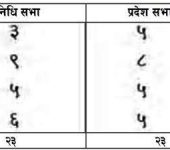 निधि सभा प्रदेश सभा
३ ५
९ ८
५ ५
६ ५
२३ २३